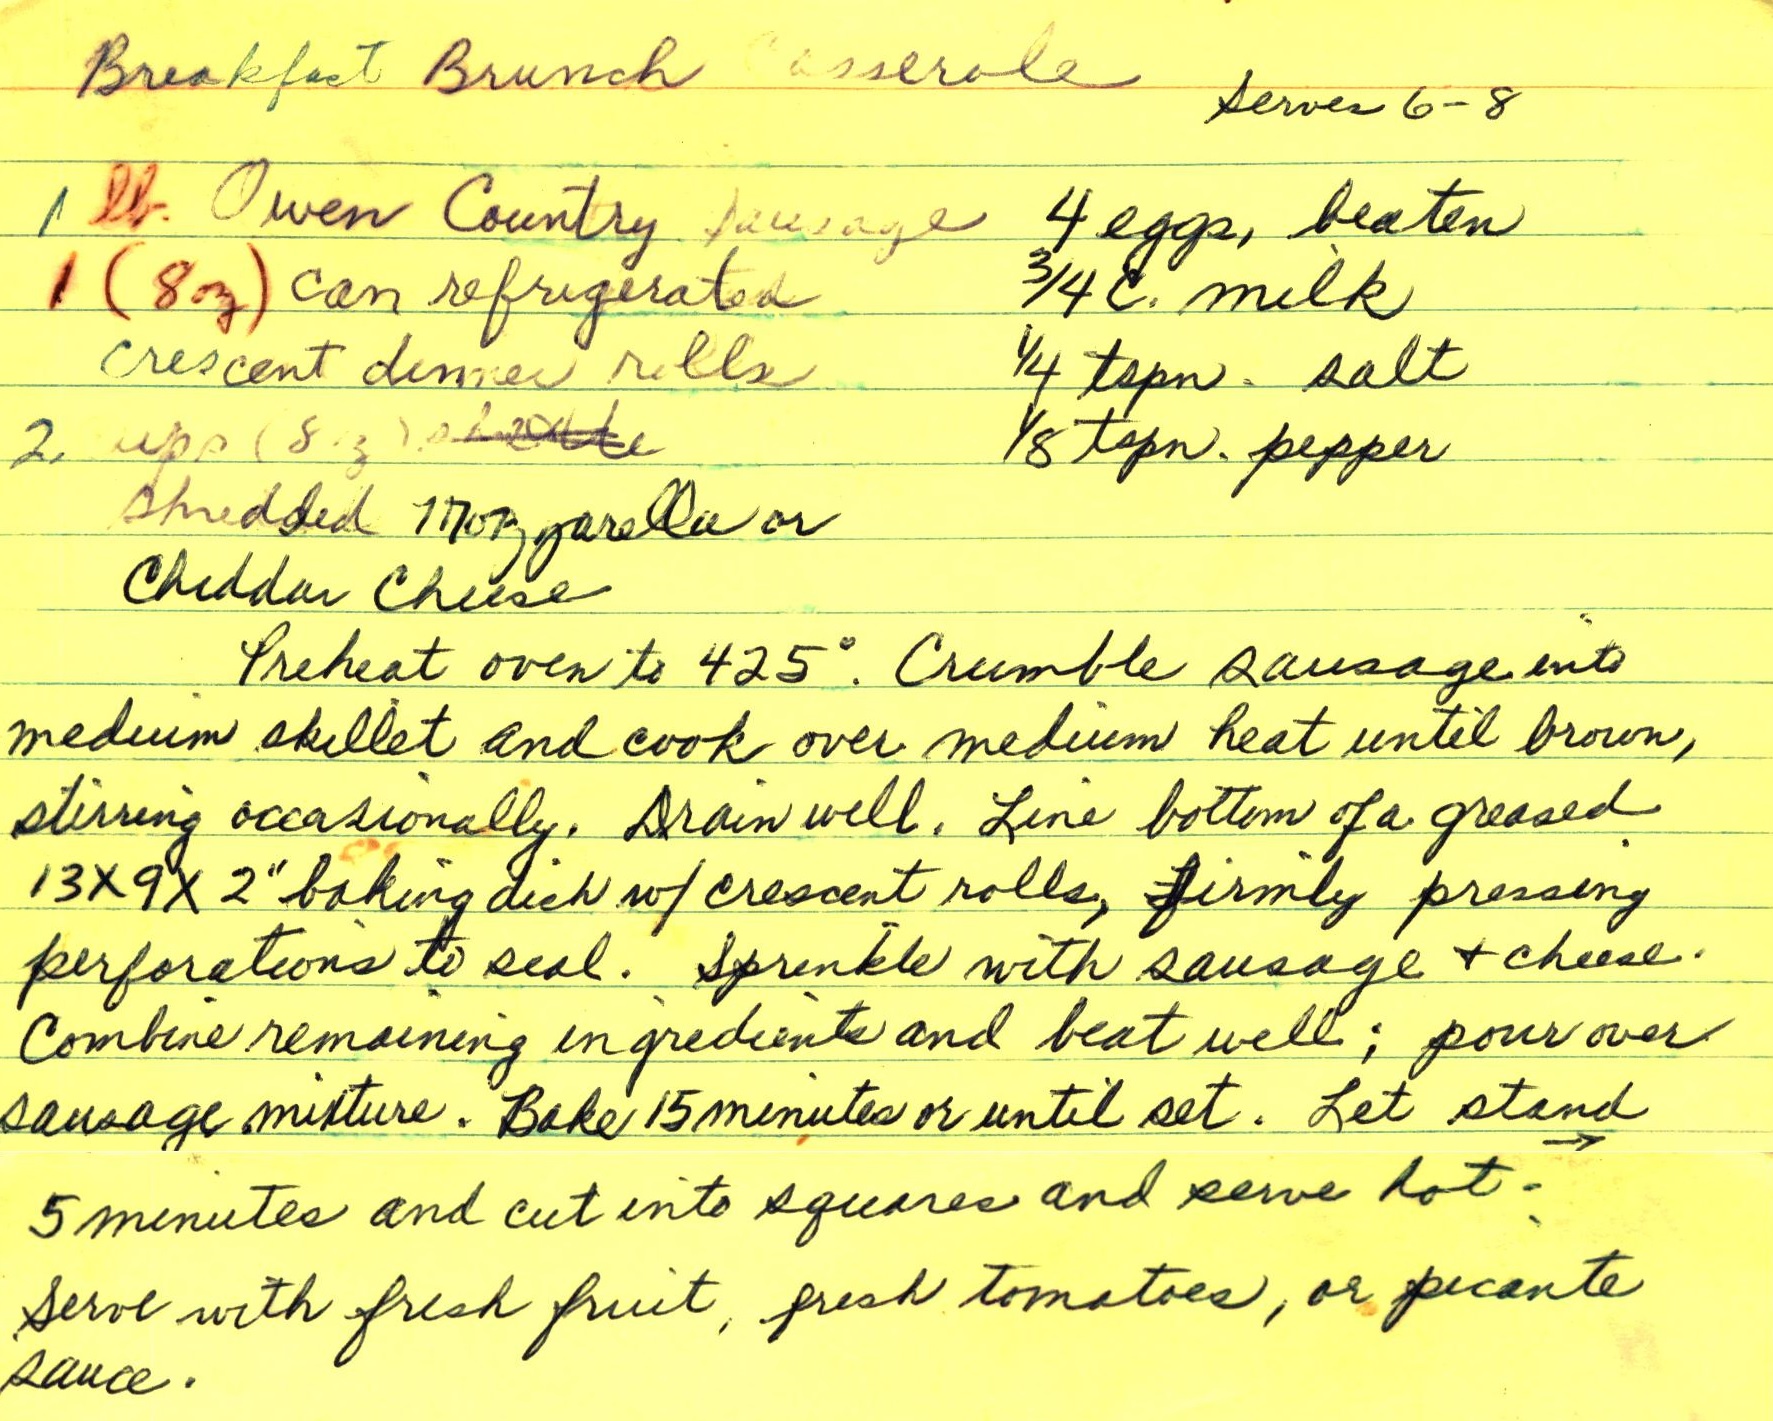 Breakfast Brunch Casserole
Serves 6-8
1 lb. Owen Country Sausage
1 (8oz) can refrigerated
crescent dinner rolls
2 cups (8oz)
shredded Mozzarella or
Cheddar Cheese
4 eggs, beaten
3/4 C. milk
1/4 tspn. salt
1/8 tspn. pepper
Preheat oven to 425°. Crumble sausage into
medium skillet and cook over medium heat until brown,
stirring occasionally. Drain well. Line bottom of a greased
13X9X2" baking dish w/ crescent rolls, firmly pressing
perforations to seal. Sprinkle with sausage + cheese.
Combine remaining ingredients and beat well; pour over
sausage mixture. Bake 15 minutes or until set. Let stand →
5 minutes and cut into squares and serve hot.
Serve with fresh fruit, fresh tomatoes, or picante
sauce.